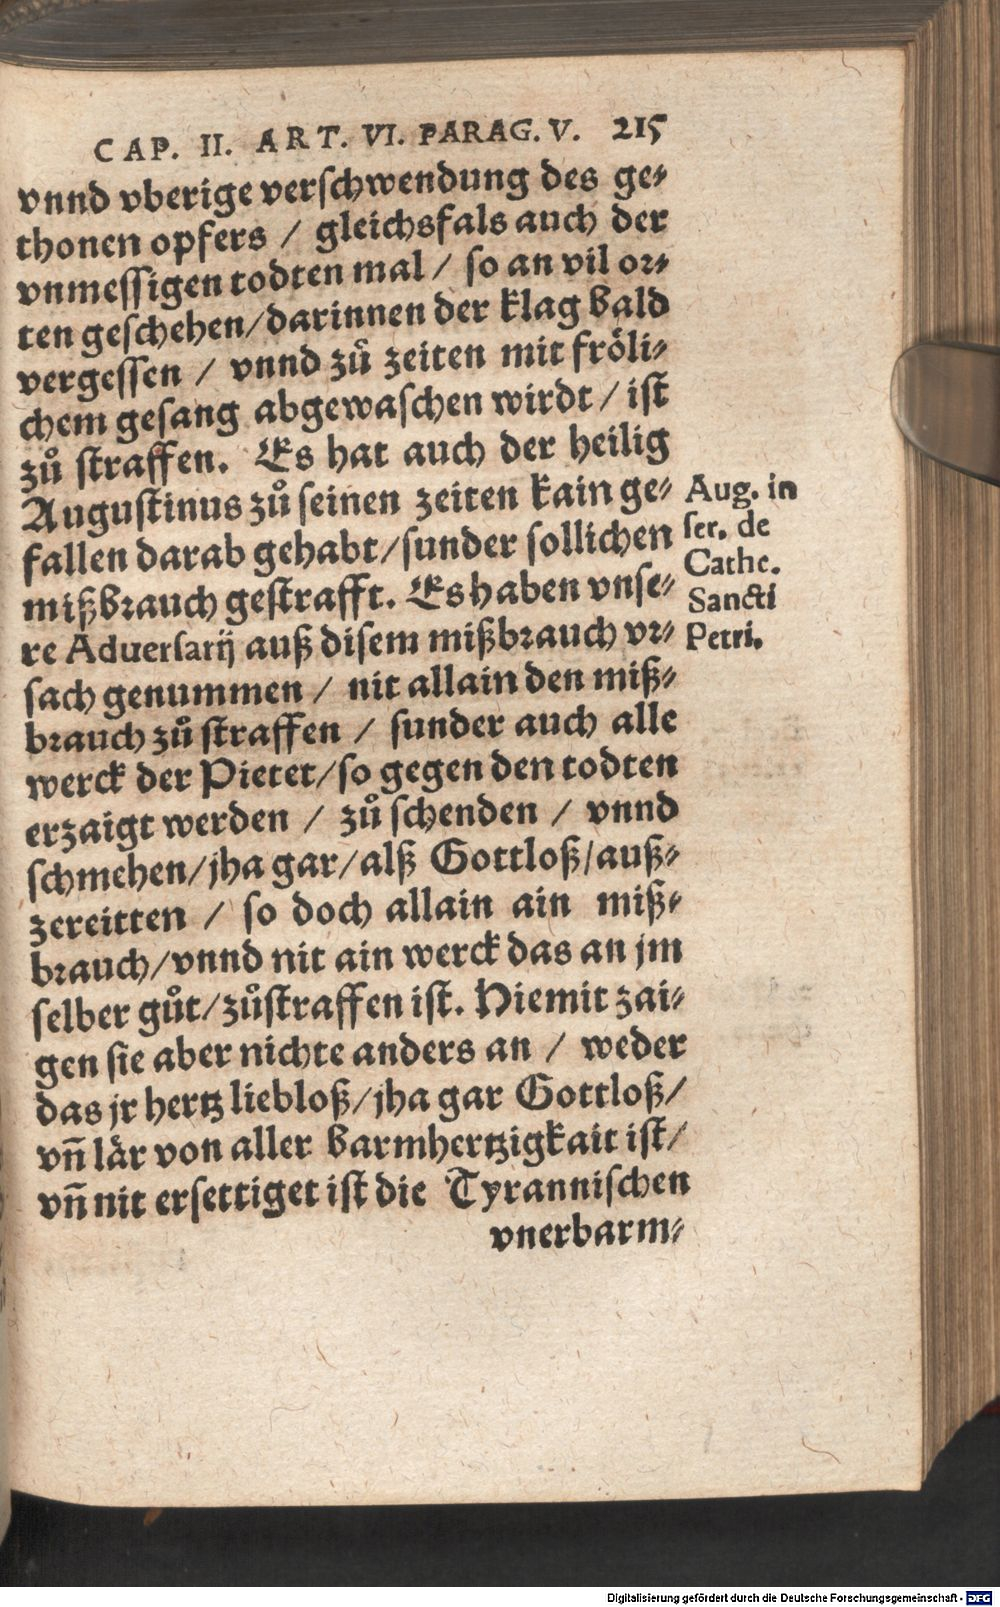 CAP. II. ART. VI. PARAG. V. 215
vnnd vberige verschwendung des ge⸗
thonen opfers / gleichsfals auch der
vnmessigen todten mal / so an vil or⸗
ten geschehen/darinnen der klag bald
vergessen / vnnd zů zeiten mit frőli⸗
chem gesang abgewaschen wirdt / ist
zů straffen. Es hat auch der heilig
Augustinus zů seinen zeiten kain ge⸗
fallen darab gehabt/sunder sollichen
mißbrauch gestrafft. Es haben vnse⸗
re Aduersarij auß disem mißbrauch vr⸗
sach genummen / nit allain den miß⸗
brauch zů straffen / sunder auch alle
werck der Pietet/so gegen den todten
erzaigt werden / zů schenden / vnnd
schmehen/jha gar/alß Gottloß/auß⸗
zereitten / so doch allain ain miß⸗
brauch/vnnd nit ain werck das an jm
selber gůt/zůstraffen ist. Hiemit zai⸗
gen sie aber nichte anders an / weder
das jr hertz liebloß/jha gar Gottloß/
vn̄ lär von aller barmhertzigkait ist/
vn̄ nit ersettiget ist die Tyrannischen
vnerbarm⸗
Aug. in
ser. de
Cathe.
Sancti
Petri.
Digitalisierung gefördert durch die Deutsche Forschungsgemeinschaft - DFG